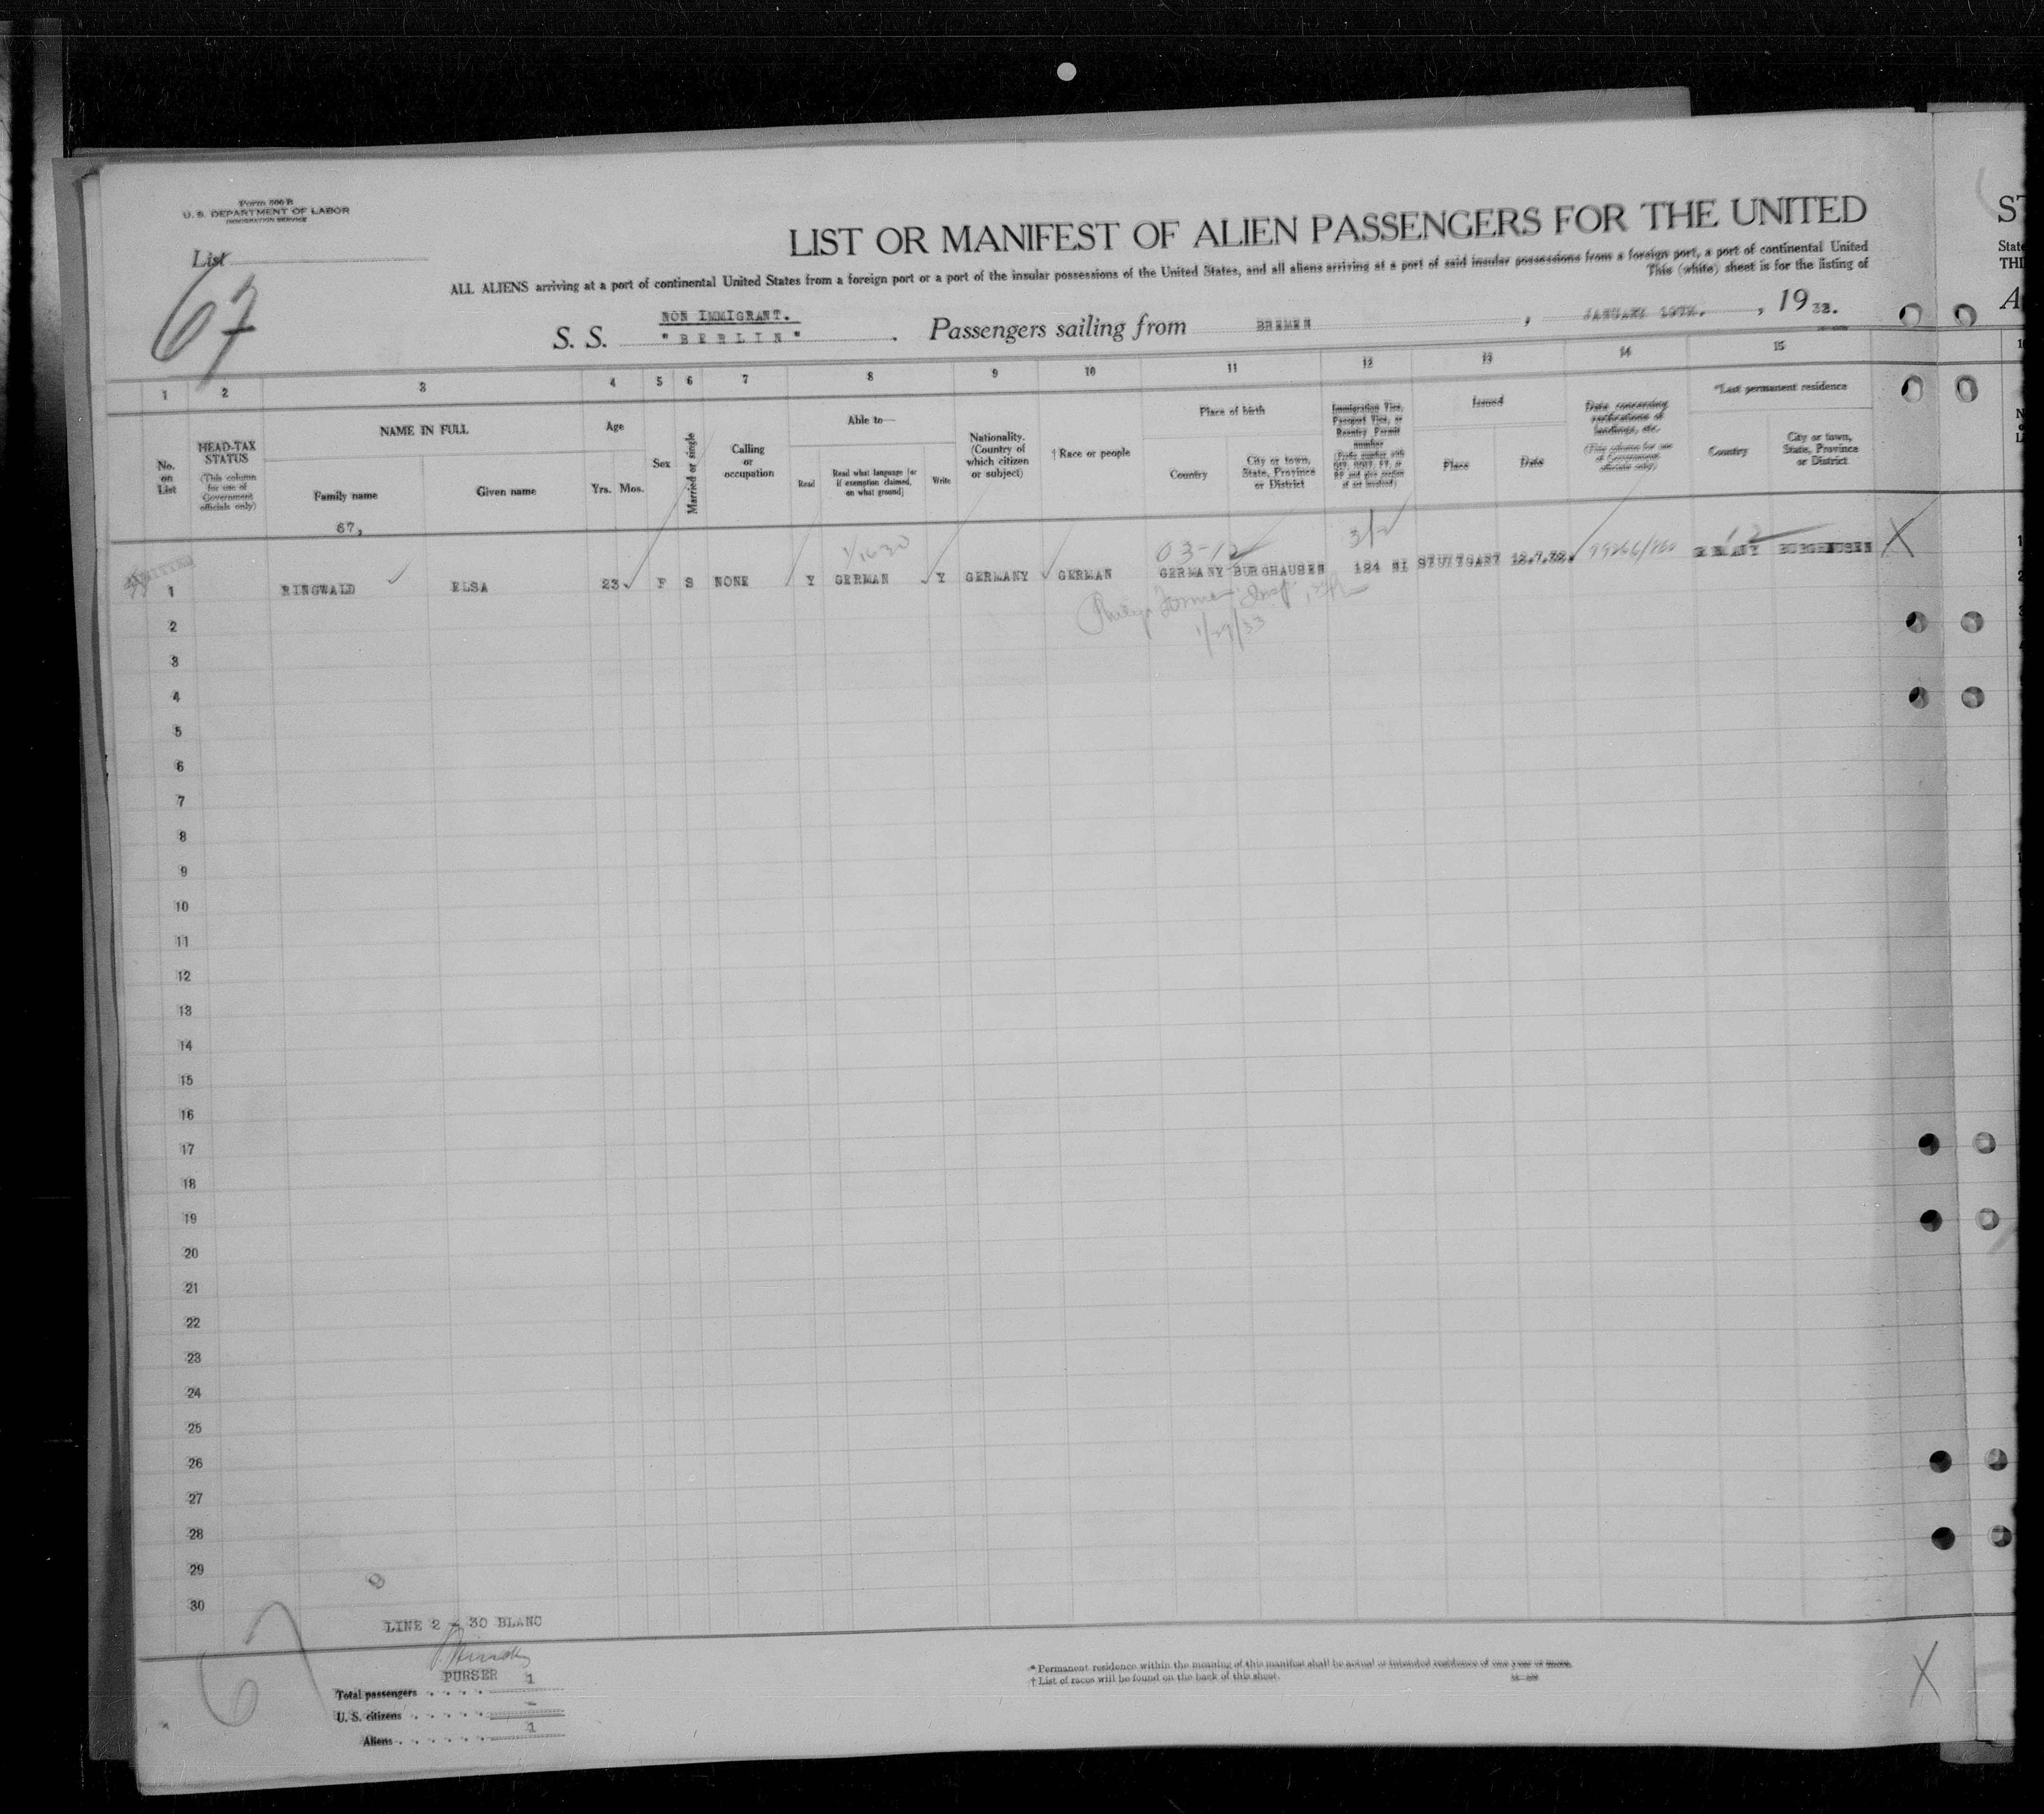 Form 500 B
U. S. DEPARTMENT OF LABOR
IMMIGRATION SERVICE
List
67
LIST OR MANIFEST OF ALIEN PASSENGERS FOR THE UNITED
ST
ALL ALIENS arriving at a port of continental United States from a foreign port or a port of the insular possessions of the United States, and all aliens arriving at a port of said insular possessions from a foreign port, a port of continental United
State
This (white) sheet is for the listing of
THI
NON IMMIGRANT.
S. S. "BERLIN". Passengers sailing from BREMEN, JANUARY 19TH., 1933.
A
1 2 3 4 5 6 7 8 9 10 11 12 13 14 15
No. on List
HEAD-TAX STATUS
(This column for use of Government officials only)
NAME IN FULL
Family name
Given name
Age
Yrs. Mos.
Sex
Married or single
Calling or occupation
Able to—
Read
Read what language [or if exemption claimed, on what ground]
Write
Nationality. (Country of which citizen or subject)
† Race or people
Place of birth
Country
City or town, State, Province or District
Immigration Visa, Passport Visa, or Reentry Permit number
Issued
Place
Date
Data concerning verifications of landings, etc.
(This column for use of Government officials only)
*Last permanent residence
Country
City or town, State, Province or District
67,
03-12
12
X
ADMITTED
1 RINGWALD ELSA 23 F S NONE Y GERMAN Y GERMANY GERMAN GERMANY BURGHAUSEN 184 NI STUTTGART 12.7.32. GERMANY BURGHAUSEN
1/29/33
2
3
4
5
6
7
8
9
10
11
12
13
14
15
16
17
18
19
20
21
22
23
24
25
26
27
28
29
30
LINE 2 - 30 BLANC
PURSER
Total passengers 1
U. S. citizens -
Aliens 1
67
* Permanent residence within the meaning of this manifest shall be actual or intended residence of one year or more.
† List of races will be found on the back of this sheet.
X